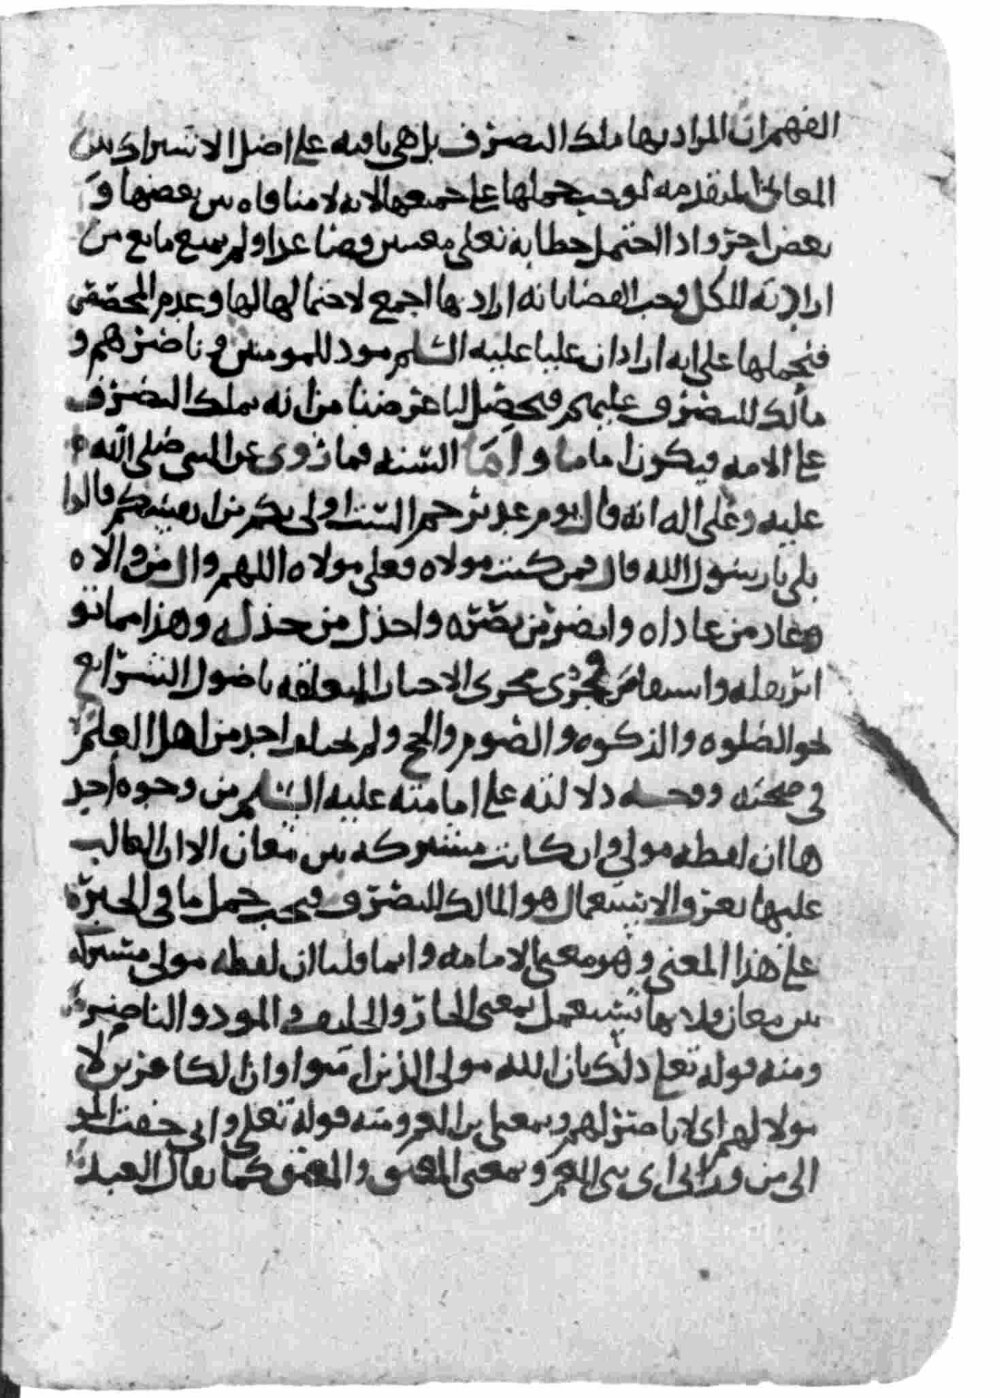 الفهم ان المراد بها ملك التصرف بل هي باقيه على اصل الاشتراك بين
المعاني المتقدمه لوجب حملها على جميعها لانه لا منافاه بين بعضها و
بعض اجر واذا احتمل خطابه تعلى معنيين فصاعدا ولم يمنع مانع من
ارادته للكل وجب القضا بانه اراد بها اجمع لاحتمالها لها وعدم المخصص
فنحملها على انه اراد ان عليا عليه السلم مود للمومنين وناصرهم و
مالك للتصرف عليهم فيحصل لنا غرضنا من انه يملك التصرف
على الامه فيكون اماما واما السنه فما روي عن النبي صلى الله
عليه وعلى اله انه قال يوم غدير خم الست اولى بكم من انفسكم قالوا
بلى يا رسول الله قال فمن كنت مولاه فعلي مولاه اللهم وال من والاه
وعاد من عاداه وانصر من نصره واخذل من خذله وهذا مما تو
اتر نقله واستفاض فجرى مجرى الاخبار المتعلقه باصول الشرايع
نحو الصلوه والزكوه والصوم والحج ولم يخالف احد من اهل العلم
في صحته ووجه دلالته على امامته عليه السلم من وجوه احد
ها ان لفظه مولى وان كانت مشتركه بين معان الا ان الغالب
عليها بعرف الاستعمال هو المالك للتصرف فيجب حمل ما في الخبر
على هذا المعنى وهو معنى الامامه وانما قلنا ان لفظه مولى مشتركه
بين معان فلانها تستعمل بمعنى الجار والحليف والمود والناصر
ومنه قوله تعلى ذلك بان الله مولى الذين امنوا وان الكافرين لا
مولا لهم اي لا ناصر لهم وبمعنى بن العم ومنه قوله تعلى واني خفت المو
الي من وراي اي بني العم وبمعنى المعتق والمعتق كما يقال العبد